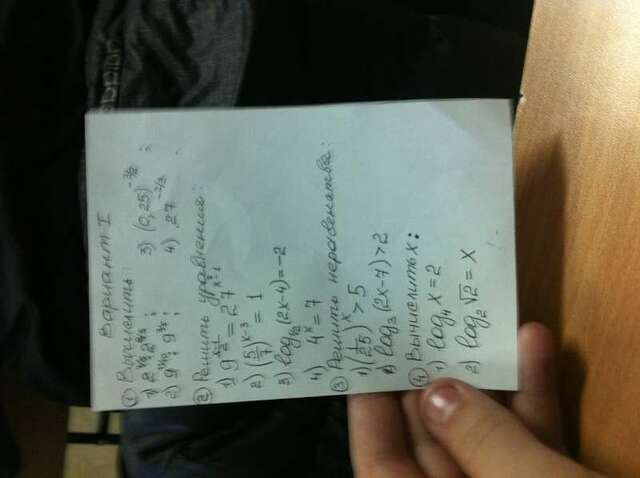 Вариант I
① Вычислить:
3) (0,25)^{-3/2};
4) 27^{-2/3};
② Решить уравнения:
2) (5/7)^{x-3} = 1
3) log_{1/2}(2x-4) = -2
4) 4^x = 7
③ Решить неравенства:
1) (1/25)^x > 5
2) log_3(2x-7) > 2
④ Вычислить x:
1) log_4 x = 2
2) log_2 √2 = x